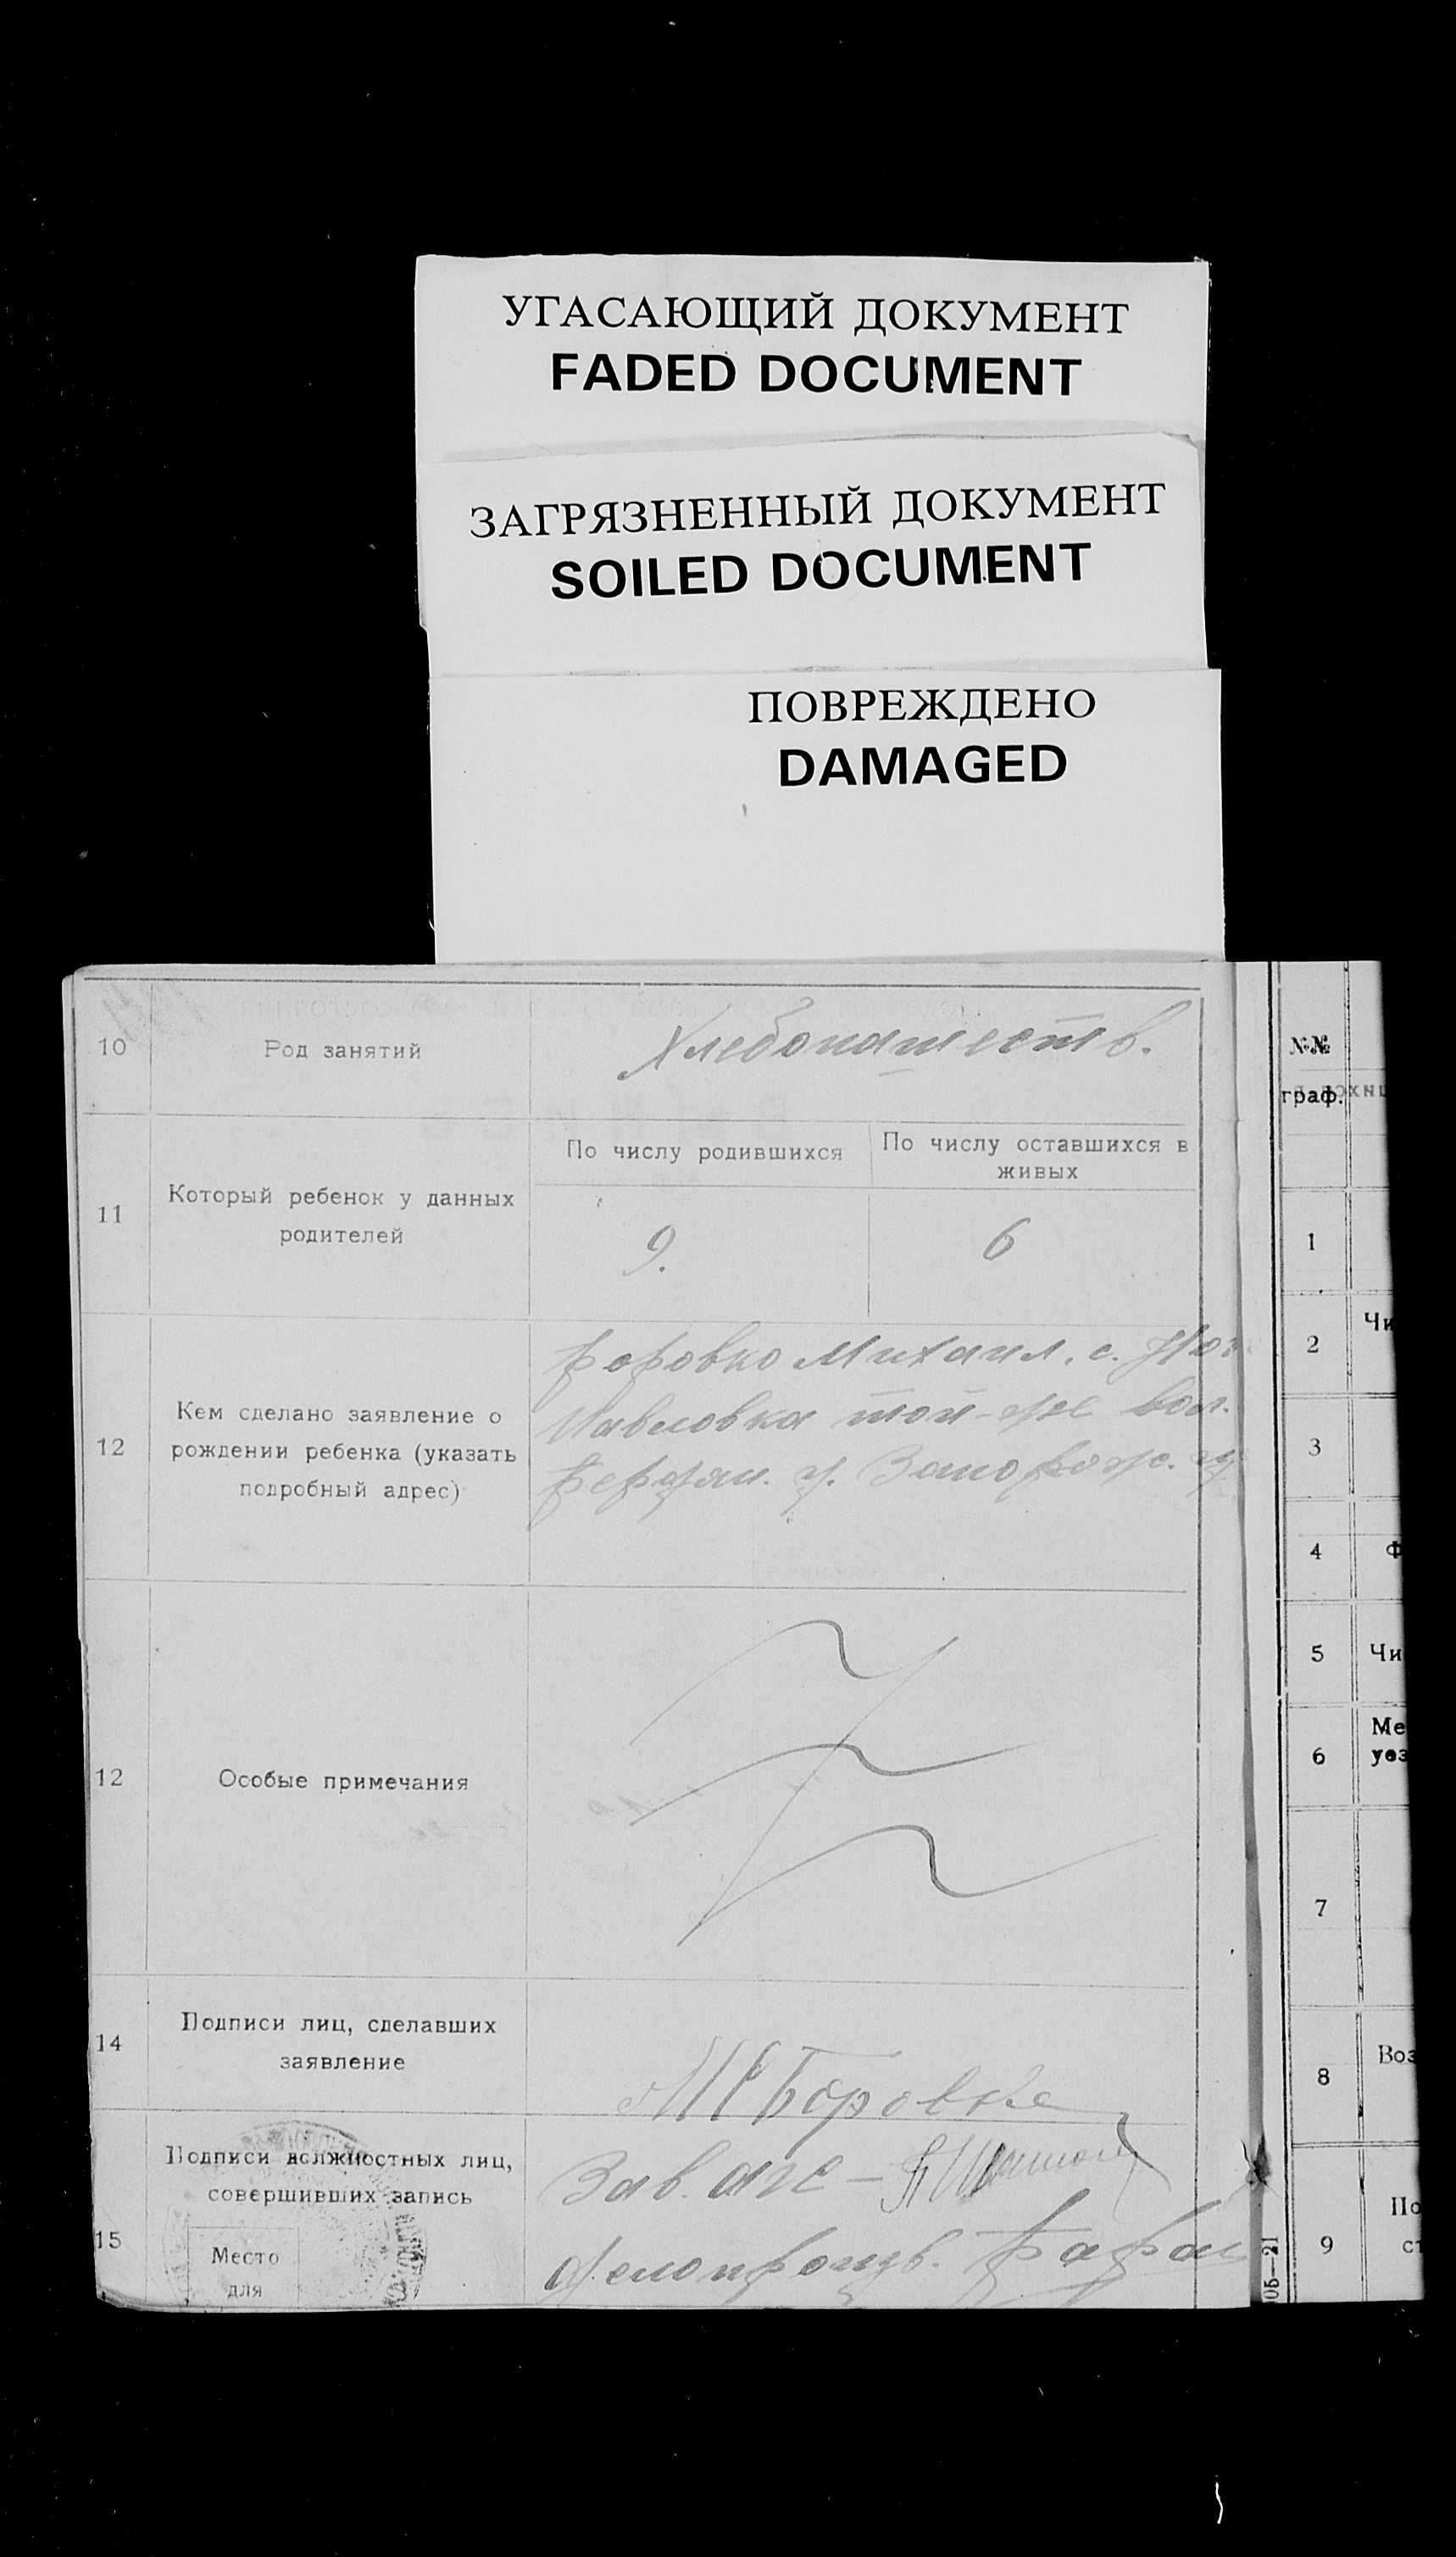 УГАСАЮЩИЙ ДОКУМЕНТ
FADED DOCUMENT
ЗАГРЯЗНЕННЫЙ ДОКУМЕНТ
SOILED DOCUMENT
ПОВРЕЖДЕНО
DAMAGED
10
Род занятий
Хлебопашеств.
11
Который ребенок у данных
родителей
По числу родившихся
9.
По числу оставшихся в
живых
6
12
Кем сделано заявление о
рождении ребенка (указать
подробный адрес)
Боровко Михаил. с. Ново
Павловка той-же вол.
Бердян. у. Запорож. г
12
Особые примечания
14
Подписи лиц, сделавших
заявление
М Боровко
15
Подписи должностных лиц,
совершивших запись
Место
для
Зав.
Делопроизв.
№№
граф.
1
2
Чи
3
4
Ф
5
Чи
6
Ме
уез
7
8
Воз
9
По
ст
05—21